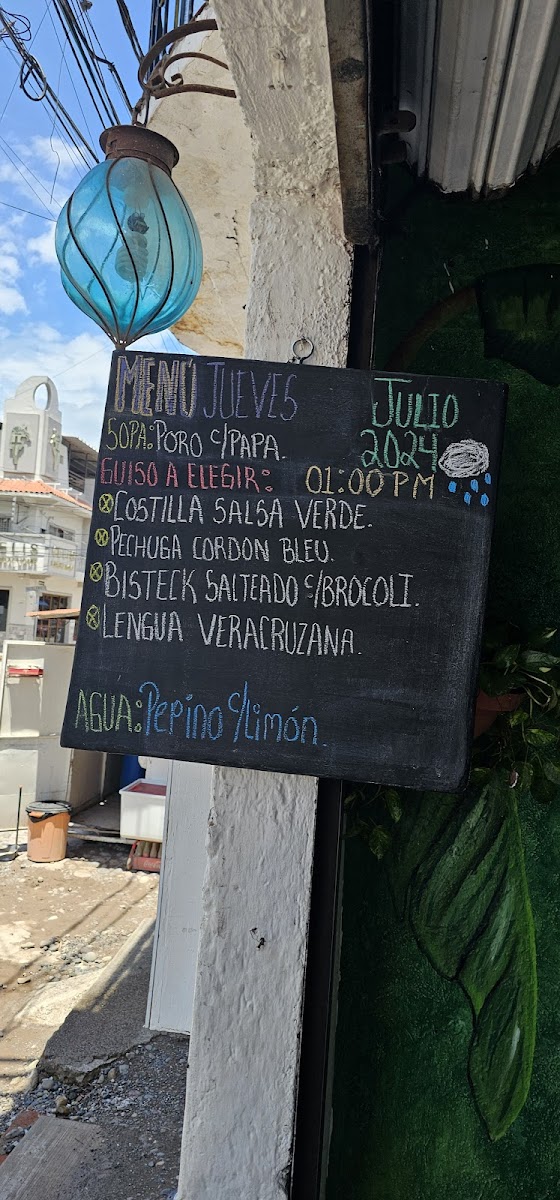 MENÚ JUEVES
JULIO
2024
SOPA: PORO C/PAPA.
GUISO A ELEGIR:
01:00 PM
COSTILLA SALSA VERDE.
PECHUGA CORDON BLEU.
BISTECK SALTEADO C/BROCOLI.
LENGUA VERACRUZANA.
AGUA: Pepino C/Limón.